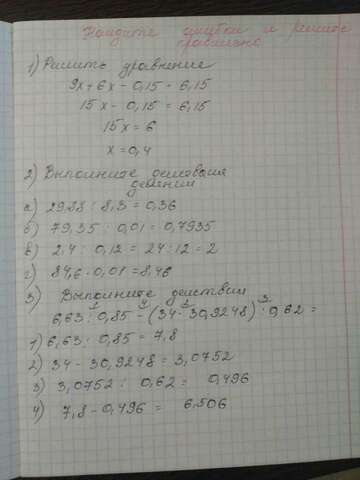 Найдите ошибки и решите
правильно
1) Решить уравнение
9x+6x-0,15=6,15
15x-0,15=6,15
15x=6
x=0,4
2) Выполните действия
деления
а) 29,88:8,3=0,36
б) 79,35:0,01=0,7935
в) 2,4:0,12=24:12=2
г) 84,6·0,01=8,46
3) Выполните действия
1 4 2 3
6,63:0,85-(34-30,9248):0,62=
1) 6,63:0,85=7,8
2) 34-30,9248=3,0752
3) 3,0752:0,62=0,496
4) 7,8-0,496=6,506